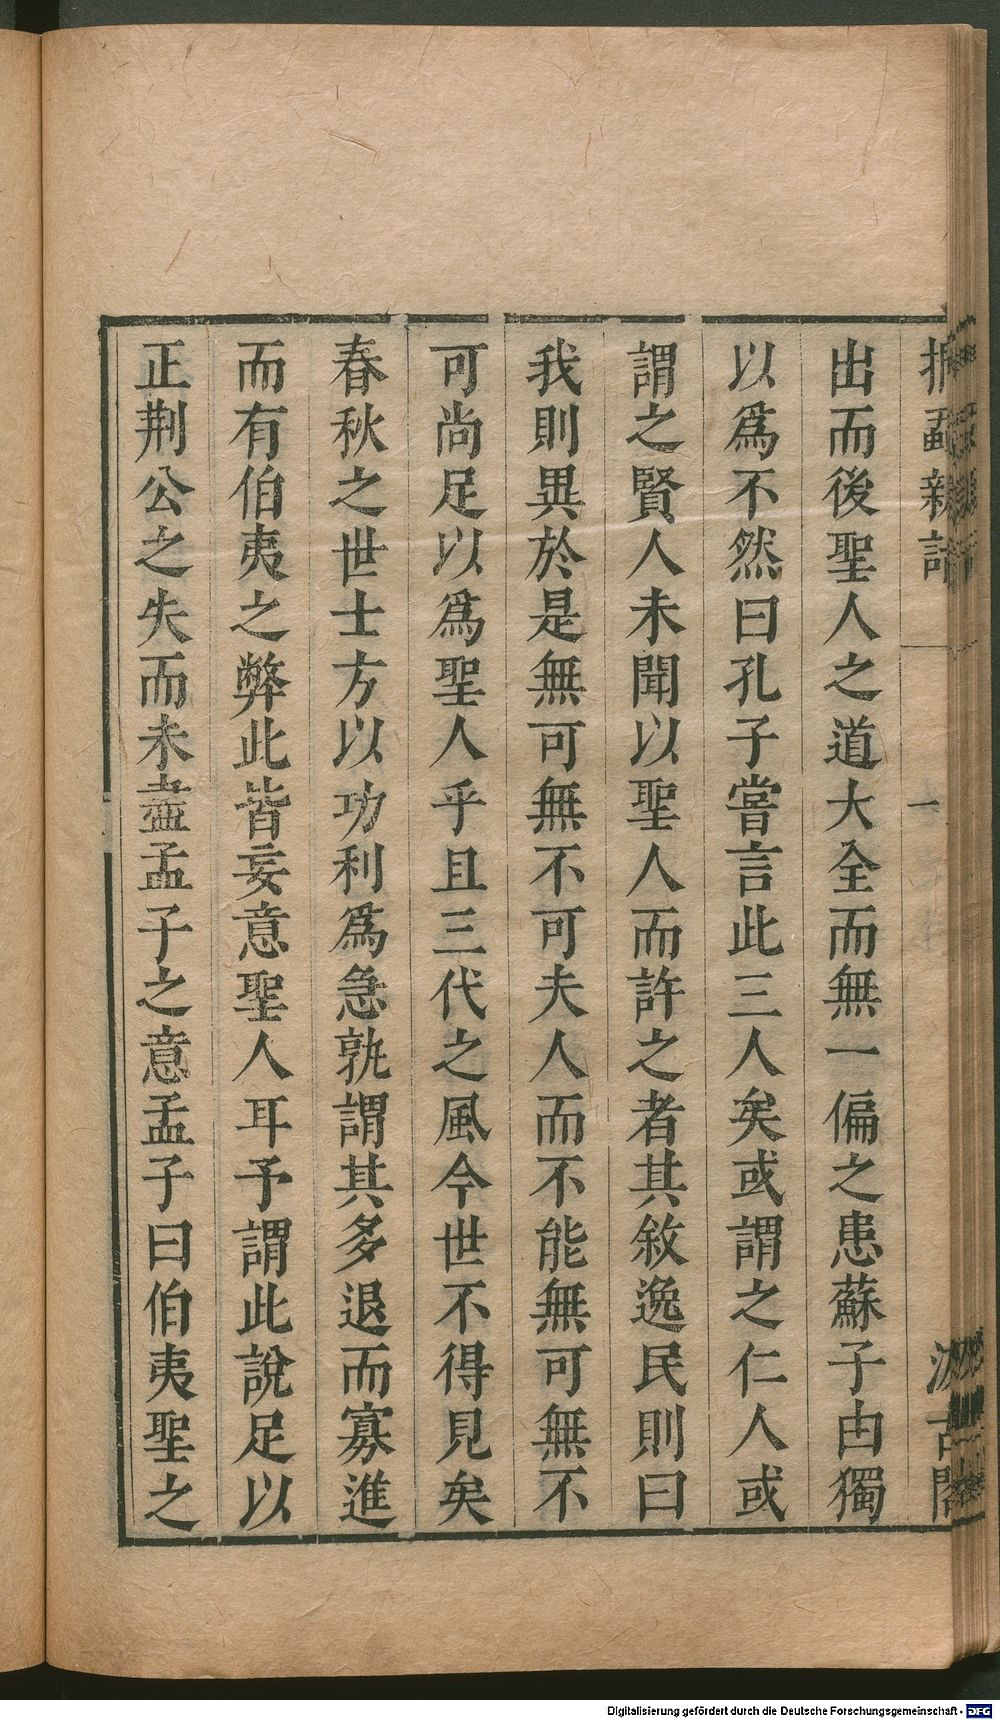 出而後聖人之道大全而無一偏之患蘇子由獨
以爲不然曰孔子嘗言此三人矣或謂之仁人或
謂之賢人未聞以聖人而許之者其敘逸民則曰
我則異於是無可無不可夫人而不能無可無不
可尚足以爲聖人乎且三代之風今世不得見矣
春秋之世士方以功利爲急孰謂其多退而寡進
而有伯夷之弊此皆妄意聖人耳予謂此說足以
正荆公之失而未盡孟子之意孟子曰伯夷聖之
一
Digitalisierung gefördert durch die Deutsche Forschungsgemeinschaft - DFG